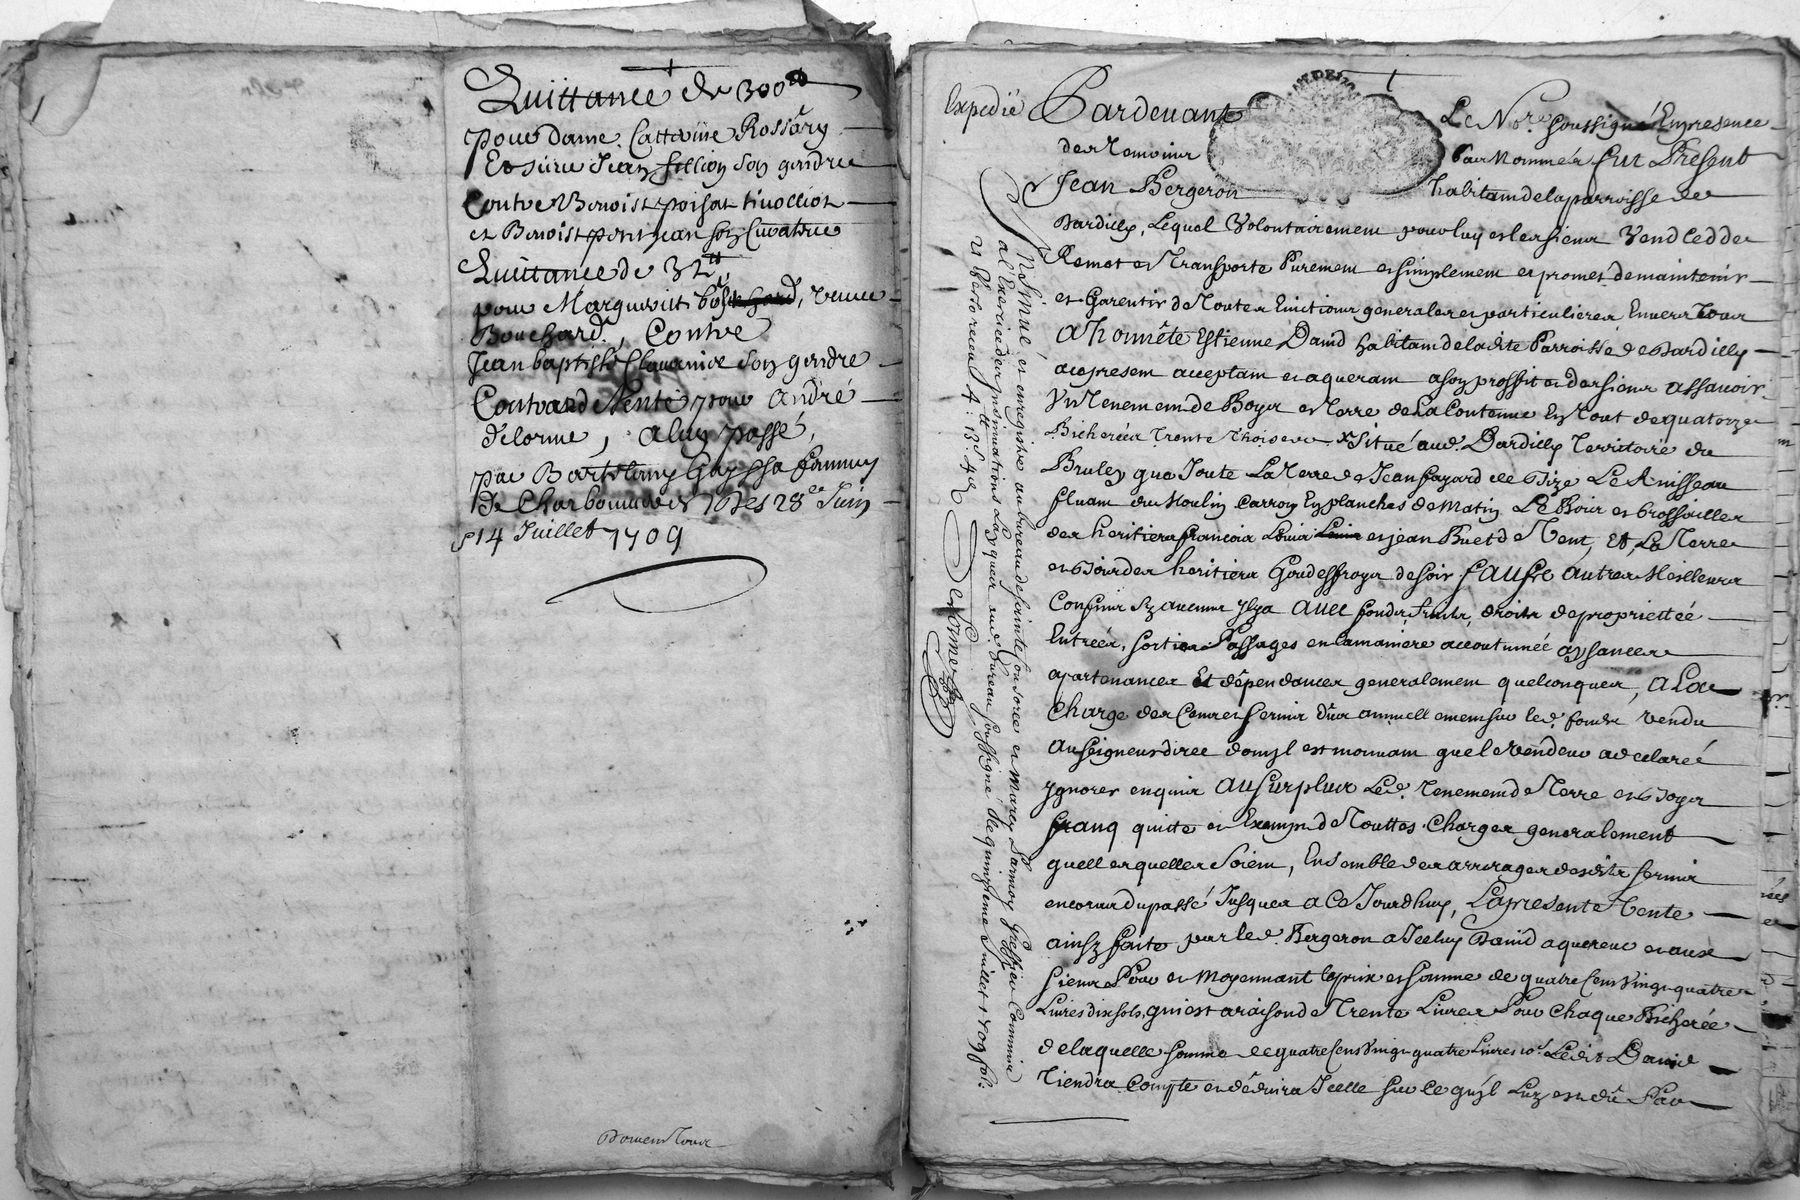 Quittance de 300ᵗᵗ
pour dame Catterine Rossary
Et sieur Jean fillion son gendre
Contre Benoist poisat tivolliot
et Benoist petitjean son Curateur
Quittance de 32ᵗᵗ
pour Marguerite veuve
Bouchard, Contre
Jean baptiste Clavanier son gendre
Contrard Vente pour André
delorme, a luy passé,
par Bartelemy Guy sa femme
de Charbonniere Des 28e Juin
14 Juillet 1709
Expedié Pardevant Le Nore. soussigné En presence
des Temoins bas Nommés fut Present
Jean Bergeron habitant de la parroisse de
Dardilly, Lequel Volontairement pour luy et les siens Vend Cedde
Remet et Transporte Purement et simplement et promet de maintenir
et Garentir de Toutes Evictions generales et particulieres Envers Tous
A honnête Estienne David habitant de la dite Parroisse de Dardilly
acy present acceptant et aquerant a son proffit et des siens assavoir
Un Tenement de et Terre de la Contenue En Tout de quatorze
Bicherées Trente Thoises Situé aud. Dardilly Territoire du
Bruley que Joute La Terre de Jean fayard de Bize Le Ruisseau
fluant du Moulin Carron En planches de Matin Le Boix et brossailles
des heritiers françois et jean Buet de Vent, Et La Terre
et Bois des heritiers Goudeffroya de soir saufs autres Meilleurs
Confins sy aucuns Il y a avec fonds, fruits, droits de proprieté
Entrées, sorties Passages en la maniere accoutumée aysances
apartenances Et dépendances generalement quelconques, a La
Charge des Cens et servis dûs annuellement sur led. fonds vendu
au seigneur direc dont Il est mouvant que le vendeur a declaré
Ignorer enquis au surplus Led. Tenement de Terre et
franq quitte et Exempt de Touttes Charges generalement
quelles quelles soient, Ensemble des arrerages desdits servis
encourus du passé Jusques a Ce Jourdhuy, La presente Vente
ainsy faite par led. Bergeron a Jceluy David aquereur et aux
siens Pour et Moyennant le prix et somme de quatre Cens Vingt quatre
Livres dix sols, qui est a raison de Trente Livres Pour Chaque Bicherée
de laquelle somme de quatre Cens Vingt quatre Livres 10s. Ledit David
Tiendra Compte et dêduira Jcelle sur Ce qu'il Luy est dû Par
Insinué et enregistré au bureau de sainte Consorce et Marcy Par moy Greffier Commis
a l'Exercice des Insinuations Laiques aud. bureau soussigné le quinzieme Juillet 1709 fol.
21 Verso receu 4ᵗᵗ 13s 4d
Delorme